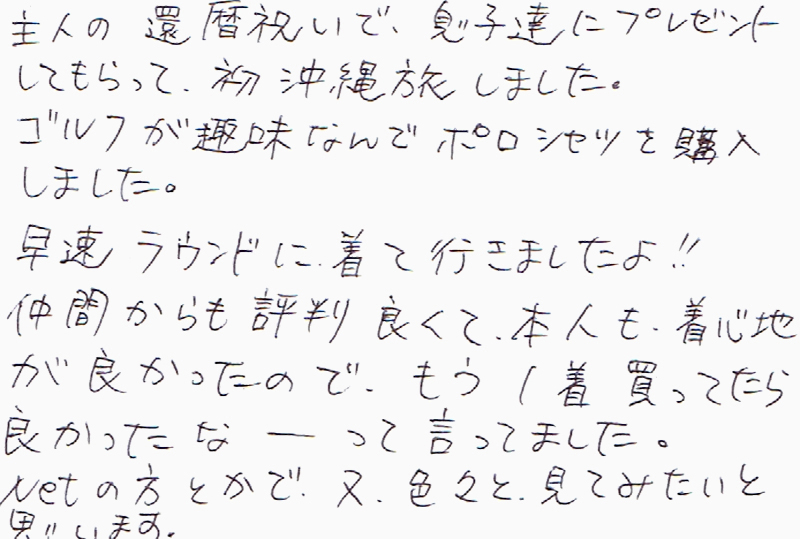 主人の還暦祝いで、息子達にプレゼント
してもらって、初沖縄旅しました。
ゴルフが趣味なんでポロシャツを購入
しました。
早速ラウンドに着て行きましたよ!!
仲間からも評判良くて、本人も、着心地
が良かったので、もう1着買ってたら
良かったなーって言ってました。
Netの方とかで、又、色々と、見てみたいと
思います。